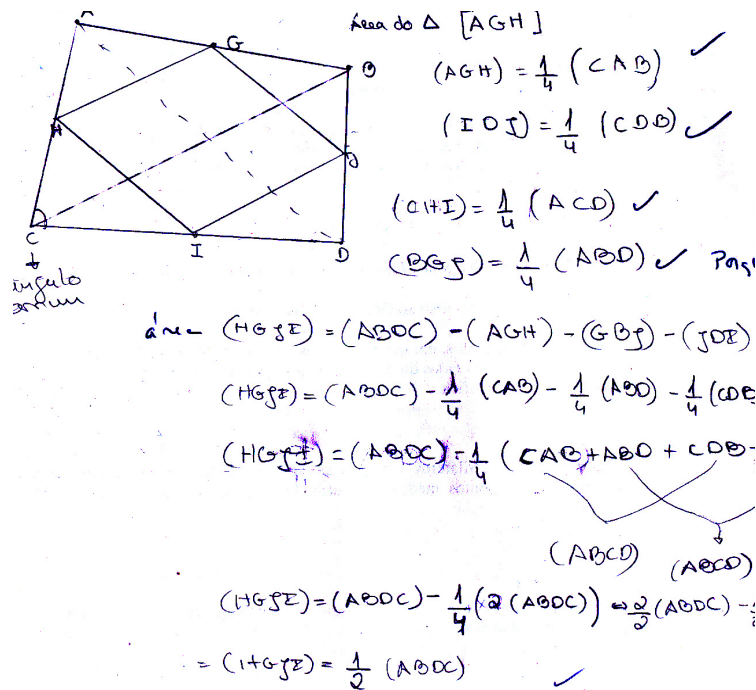 A
G
B
H
J
C
I
D
ângulo
comum
Área do Δ [AGH]
(AGH) = 1/4 (CAB) ✓
(IDJ) = 1/4 (CDB) ✓
(CHI) = 1/4 (ACD) ✓
(BGJ) = 1/4 (ABD) ✓
área (HGJI) = (ABDC) - (AGH) - (GBJ) - (JDI)
(HGJI) = (ABDC) - 1/4 (CAB) - 1/4 (ABD) - 1/4 (CDB
(HGJI) = (ABDC) - 1/4 (CAB + ABD + CDB
(ABCD) (ABCD)
(HGJI) = (ABDC) - 1/4 (2 (ABDC)) ⇔ 2/2 (ABDC) -
= (HGJI) = 1/2 (ABDC) ✓